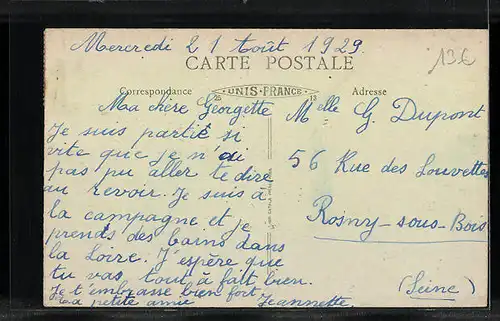 Mercredi 21 Août 1929.
13€
CARTE POSTALE
Correspondance
UNIS-FRANCE
25
13
Adresse
Ma chère Georgette
Je suis partie si
vite que je n'ai
pas pu aller te dire
au revoir. Je suis à
la campagne et je
prends des bains dans
la Loire. J'espère que
tu vas tout à fait bien.
Je t'embrasse bien fort
Ta petite amie Jeannette.
Melle G. Dupont
56 Rue des Louvettes
Rosny-sous-Bois
(Seine)